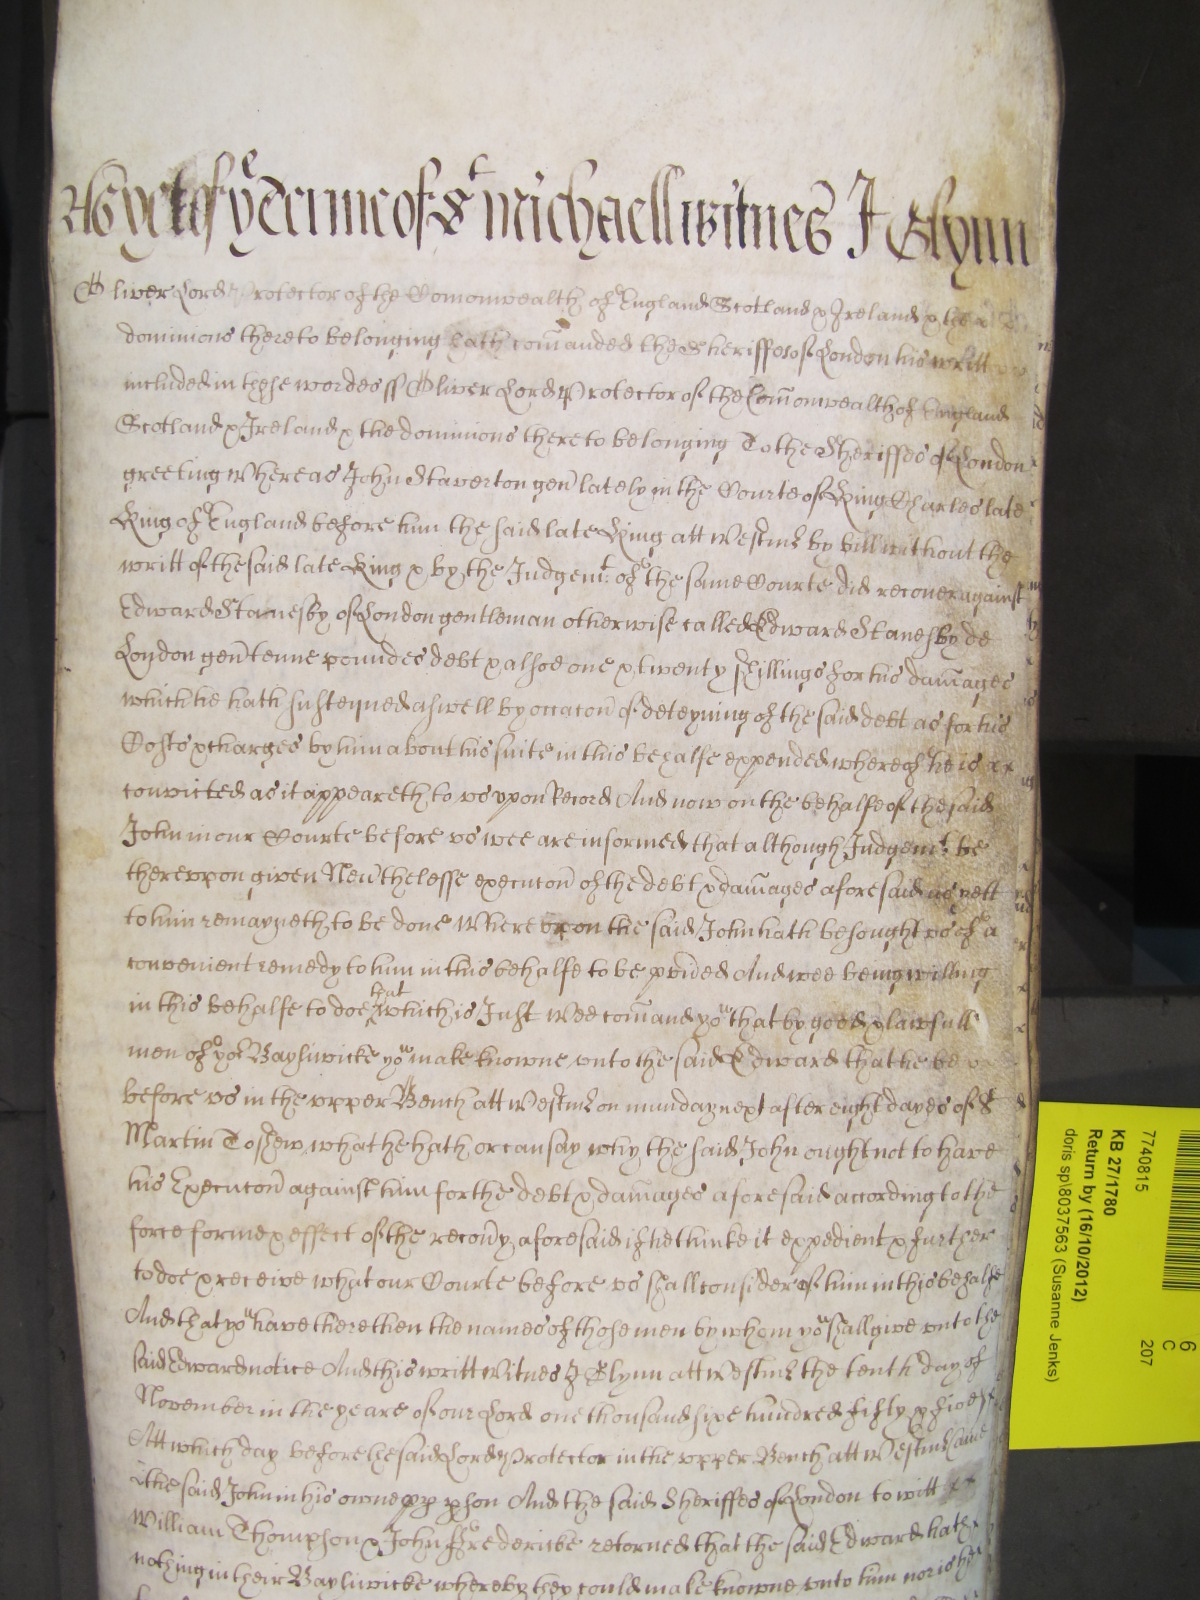 As yet of ye terme of St Michaell witnes J Glynn
Oliver Lord Protector of the Comonwealth of England Scotland & Ireland & the
dominions thereto belonging hath com̃anded the Sheriffes of London his writt
included in these wordes ss Oliver Lord Protector of the Com̃onwealth of England
Scotland & Ireland & the dominions thereto belonging To the Sheriffes of London
greeting Whereas John Staverton gen̄ lately in the Courte of King Charles late
King of England before him the said late King att Westm̃ by bill without the
writt of the said late King & by the Judgemt. of the same Courte did recover against
Edward Stanesby of London gentleman otherwise called Edward Stanesby de
London gen̄ tenne poundes debt & alsoe one & twenty shillings for his dam̃ages
which he hath susteyned aswell by occac̃on of deteyning of the said debt as for his
Costs & charges by him about his suite in this behalfe expended whereof he is
convicted as it appeareth to us upon Record And now on the behalfe of the said
John in our Courte before us wee are informed that although Judgemt. be
thereupon given Nev̄thelesse execuc̃on of the debt & dam̃ages aforesaid as yett
to him remayneth to be done Whereupon the said John hath besought us of a
convenient remedy to him in this behalfe to be p̱vided And wee being willing
in this behalfe to doe that which is Just Wee com̃and you that by good & lawfull
men of yor Bayliwicke you make knowne unto the said Edward that he be
before us in the upper Bench att Westm̃ on munday next after eight dayes of St
Martin To shew what he hath or can say why the said John ought not to have
his Execuc̃on against him for the debt & dam̃ages aforesaid according to the
force forme & effect of the recov̄y aforesaid if he thinke it expedient & further
to doe & receive what our Courte before us shall consider of him in this behalfe
And that you have there then the names of those men by whom you shall give unto the
said Edward notice And this writt Witnes J Glynn att Westm̃ the tenth day of
November in the yeare of our Lord one thousand sixe hundred fifty & five
Att which day before the said Lord Protector in the upper Bench att Westm̃ came
the said John in his owne p̱p p̱son And the said Sheriffes of London to witt
William Thompson & John Fredericke retorned that the said Edward hath
nothing in their Bayliwicke whereby they could make knowne unto him nor is hee
7740815
KB 27/1780
Return by (16/10/2012)
doris sp\8037563 (Susanne Jenks)
6
C
207